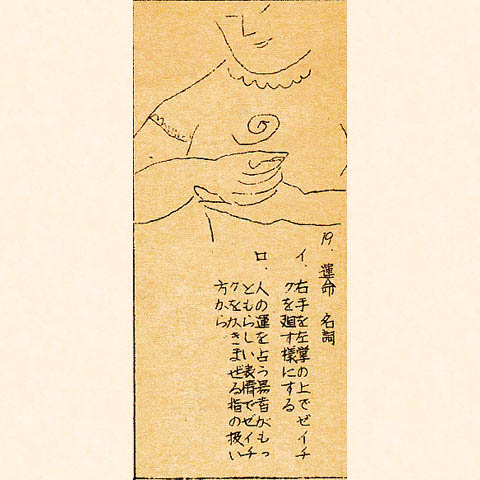 19. 運命 名詞
イ、右手を左掌の上でゼイチ
クを廻す様にする
ロ、人の運を占う易者がもっ
ともらしい表情でゼイチ
クをかきまぜる指の扱い
方から